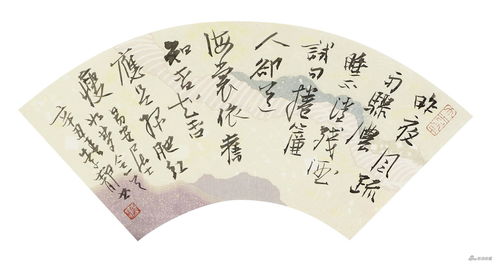 昨夜
雨驟濃風疏
睡不消殘酒
試問捲簾
人卻道
海棠依舊
知否知否
應是綠肥紅
瘦
易安居士
如夢令
辛丑